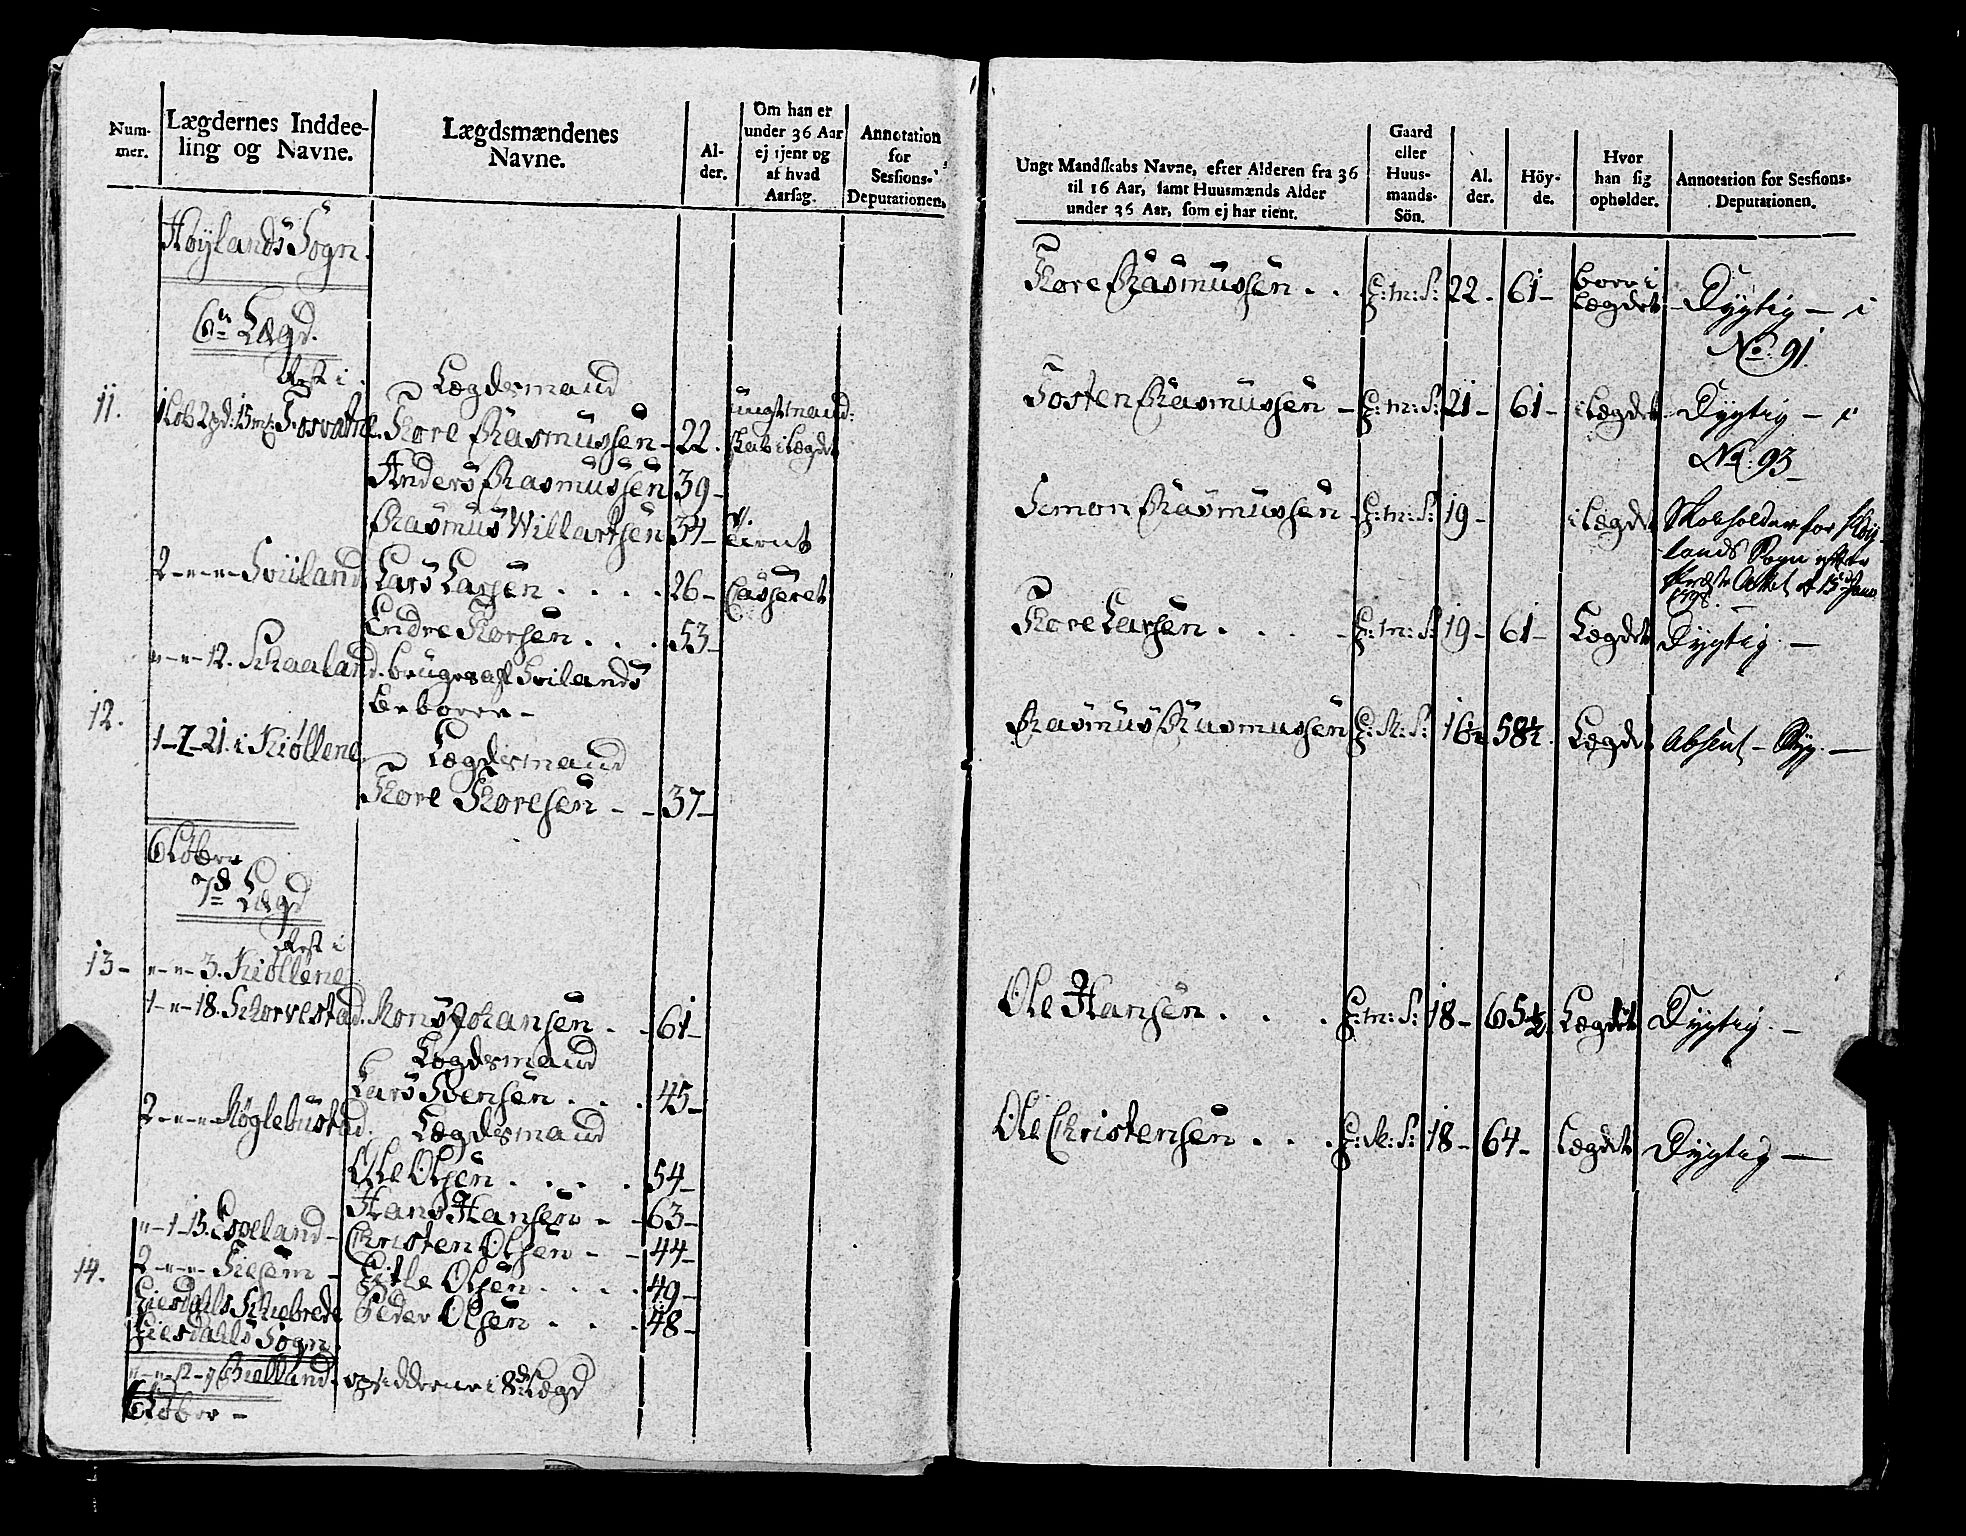 Num-
mer.
Lægdernes Inddee-
ling og Navne.
Lægdsmændenes
Navne.
Al-
der.
Om han er
under 36 Aar
ej tjent og
af hvad
Aarsag.
Annotation
for
Sessions-
Deputationen.
Høylands Sogn.
6te Lægd.
Rest i
Lægdsmand
11.
1 Løb 2 pd: 15 mk: Fosvatne.
Tore Rasmussen - 22.
ungt mand:
skab i Lægdet
Anders Rasmussen 39 -
Rasmus Willartsen 34 -
tient
2 - " - " - Sviiland
Lars Larsen . . . . 26 -
Casseret
Endre Torsen . . . 53 -
" - " - 12. Skaaland.
bruges af Svilands
Beboere -
12.
1 - 2 - 21. i Kiøllene.
Lægdsmand
Tore Toresen - - 37 -
6 Løber
7de Lægd
Rest i
13 -
" - " - 3. Kiøllene
1 - " - 18. Skorvestad.
Mons Johansen . . 61 -
Lægdsmand
Lars Svensen . . . 45 -
2 - " - " - Røglebustad.
Lægdsmand
Ole Olsen . . . . 54 -
Hans Hansen - - 63 -
" - 1 - 15. Espeland -
Christen Olsen - - 44 -
14.
2 - " - " - Siesem -
Gitle Olsen . . . . 49 -
Giesdahls Skibrede
Peder Olsen . . . 48 -
Giesdahls Sogn.
" - " - 12 - i Bielland.
opsidderne i 8de Lægd
6 Løber -
Ungt Mandskabs Navne, efter Alderen fra 36
til 16 Aar, samt Huusmænds Alder
under 36 Aar, som ej har tient.
Gaard
eller
Huus-
mands-
Sön.
Al.
der.
Höy-
de.
Hvor
han sig
opholder.
Annotation for Sessions-
Deputationen.
Tore Rasmussen . . G: m: S: 22. 61 - boer i
Lægdet - Dygtig - i
No. 91.
Tosten Rasmussen - G: m: S: 21 - 61 - i Lægdet - Dygtig - i
No: 93 -
Simon Rasmussen - G: m: S: 19 - i Lægdet
for Høy-
lands Sogn efter
Attest af 15 Janu
Tore Larsen . . . - G: m: S: 19 - 61 - Lægdet Dygtig. -
Rasmus Rasmussen G: M: S: 16½ 58½. Lægdet Absent - Syg. -
Ole Hansen . . . G: m: S: 18 - 65½. Lægdet Dygtig. -
Ole Christensen . . . G: M: S: 18 - 64 - Lægdet Dygtig -